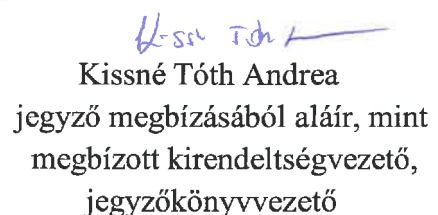 Kissné Tóth Andrea
jegyző megbízásából aláír, mint
megbízott kirendeltségvezető,
jegyzőkönyvvezető